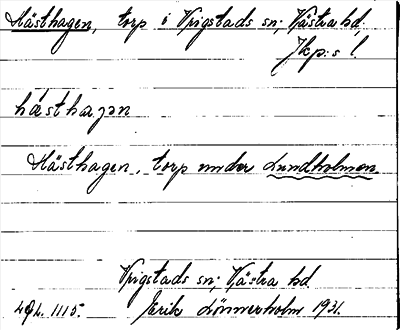 Hästhagen, torp i Vrigstads sn; Västra hd;
Jkp:s l.
hæsthagən
Hästhagen, torp under Lundholmen
Vrigstads sn; Västra hd.
Erik Lönnerholm 1931.